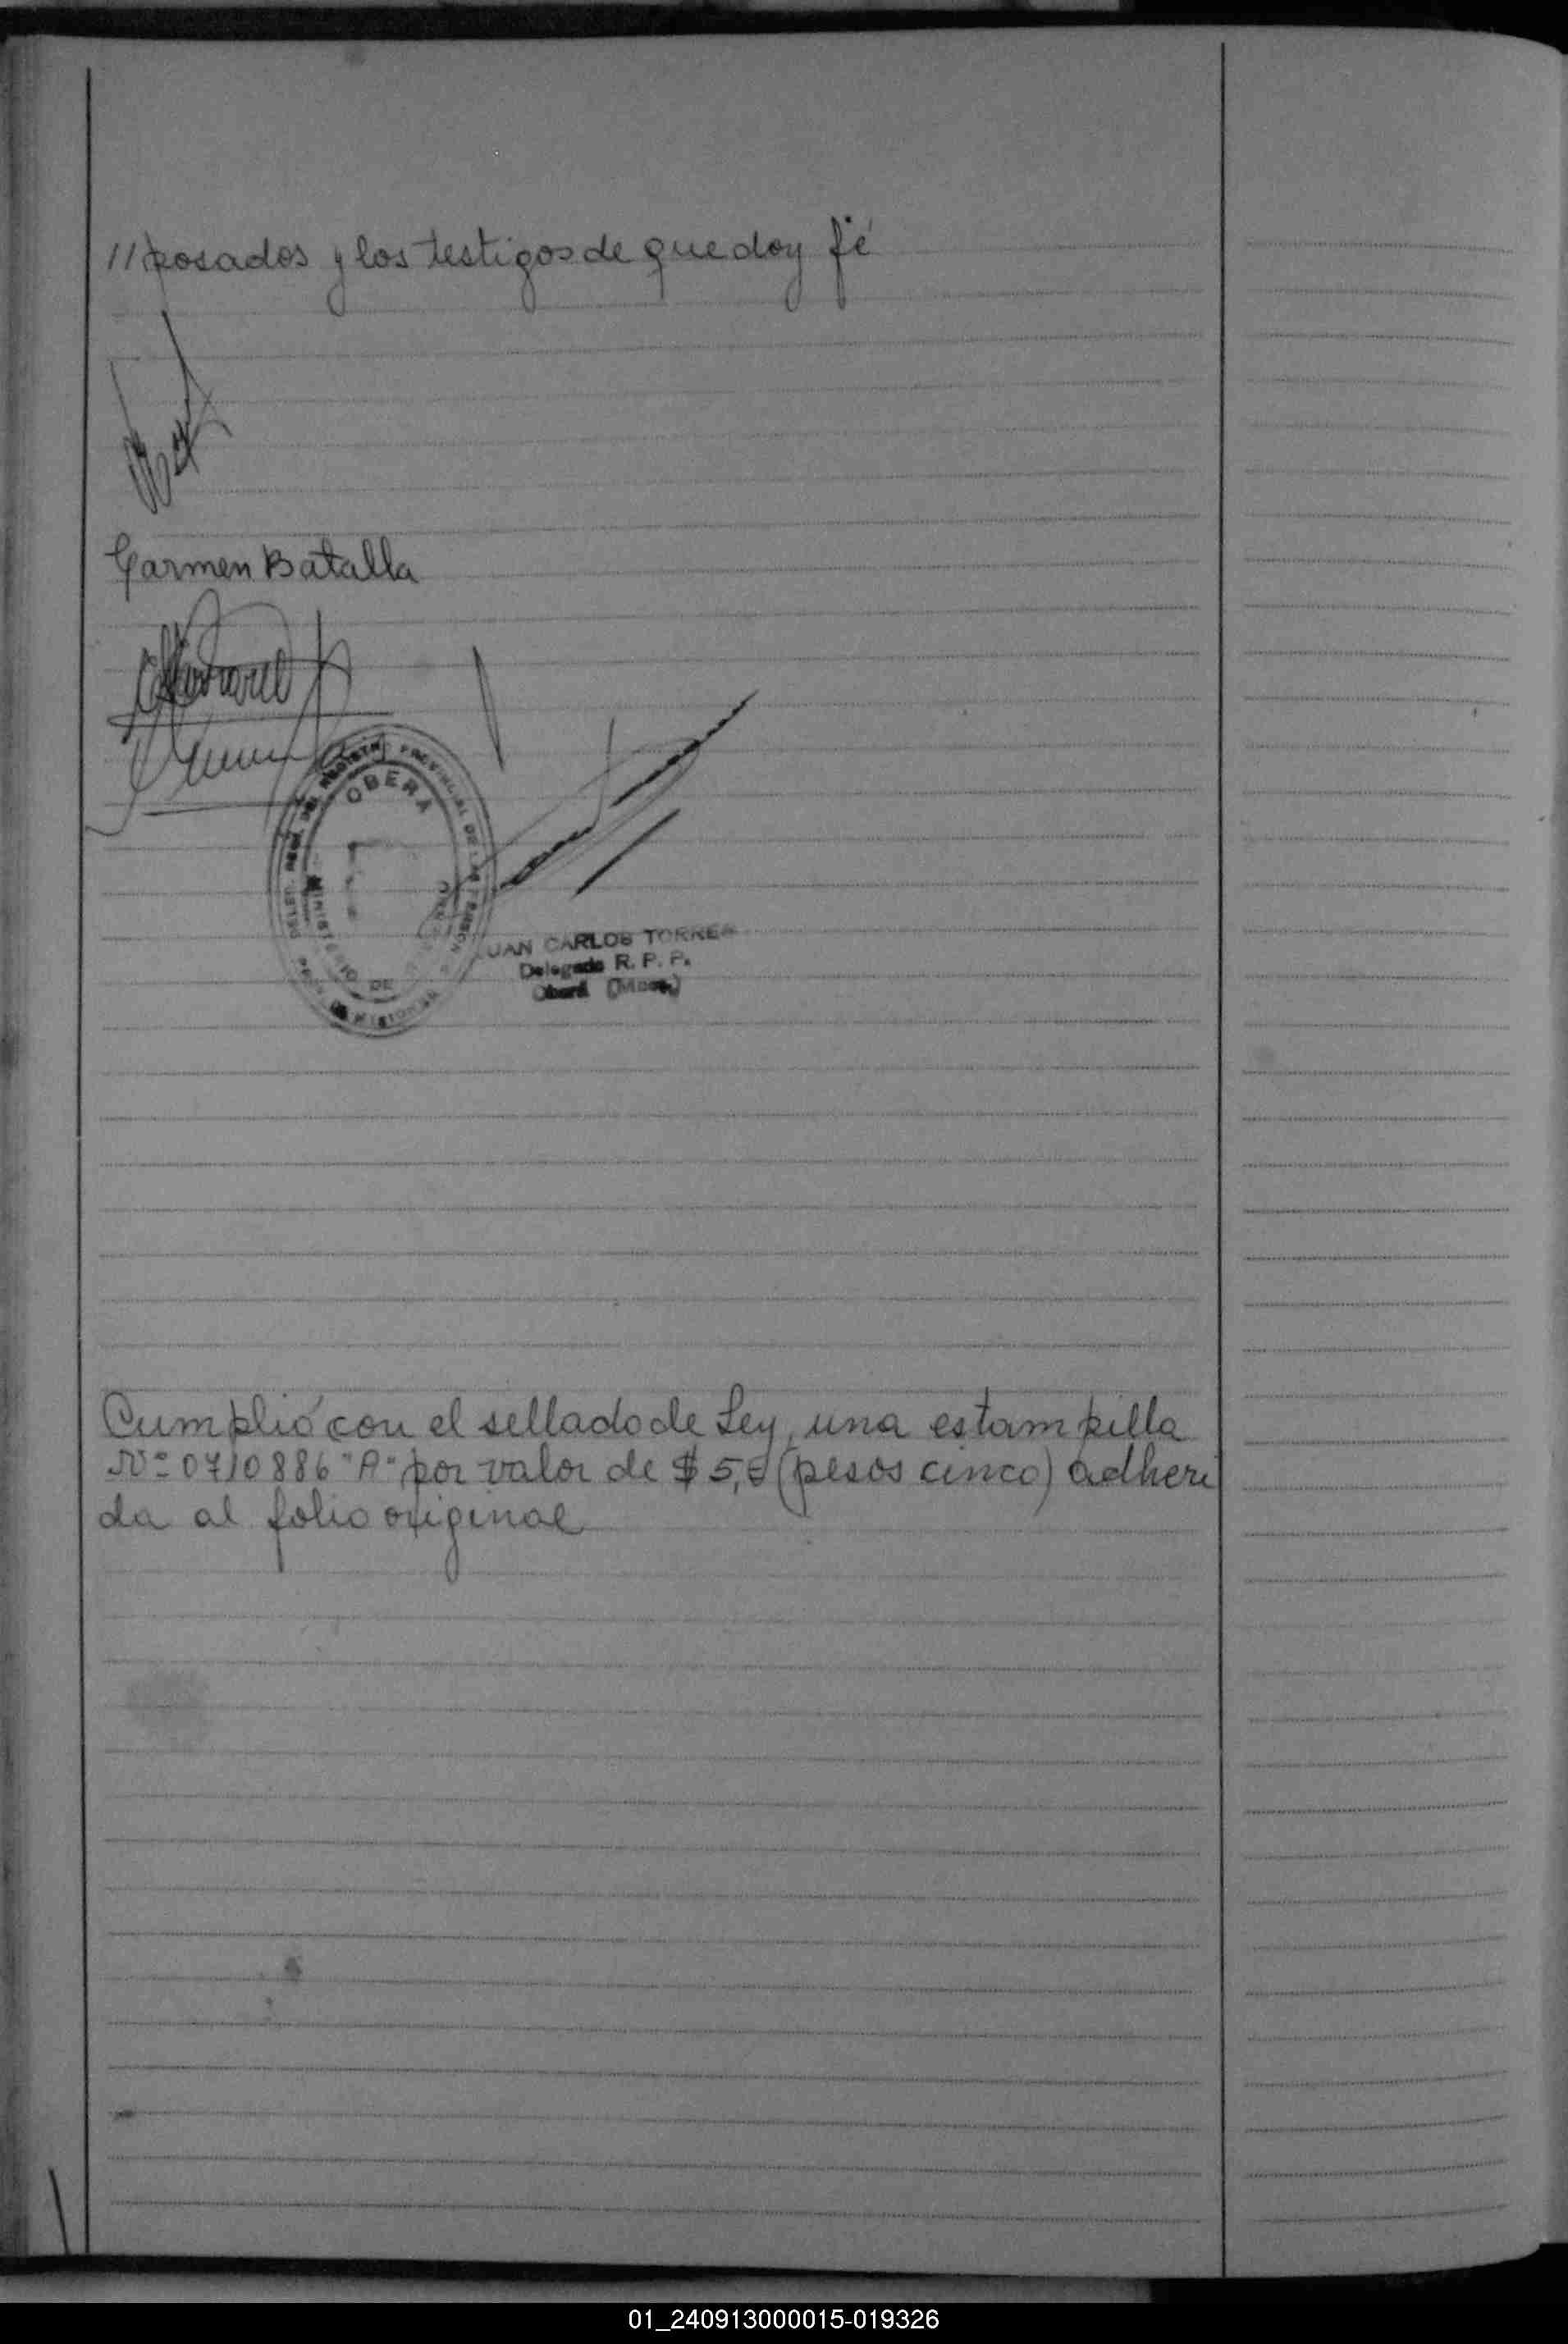 //posados y los testigos de que doy fé
Carmen Batalla
OBERA
PROVINCIAL DE LAS PERSONAS
MINISTERIO DE
DE MISIONES
JUAN CARLOS TORRES
Delegado R. P. P.
Oberá (Mnes.)
Cumplió con el sellado de Ley, una estampilla
Nº 0710886 "A" por valor de $ 5,0 (pesos cinco) adheri
da al folio original
01_240913000015-019326